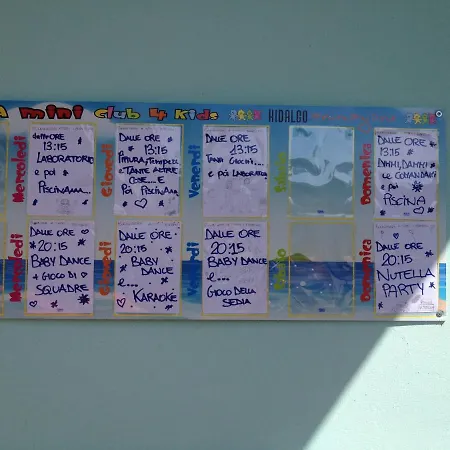 A mini Club 4 Kids HIDALGO
Mercoledì
dalle ORE
13:15
LABORATORIO
e poi
PISCINAAAA...
Giovedì
DALLE ORE
13:15
e
TANTE ALTRE
COSE... E
Poi PISCINA!!
Venerdì
DALLE ORE
13:15
e poi LABORATORIO
Domenica
DALLE ORE
13:15
e poi
PISCINA
Mercoledì
DALLE ORE
20:15
BABY DANCE
+ GIOCO DI
SQUADRE
Giovedì
DALLE ORE
20:15
BABY
DANCE
e...
KARAOKE
Venerdì
DALLE ORE
20:15
BABY DANCE
e...
GIOCO DELLA
SEDIA
Domenica
DALLE ORE
20:15
NUTELLA
PARTY